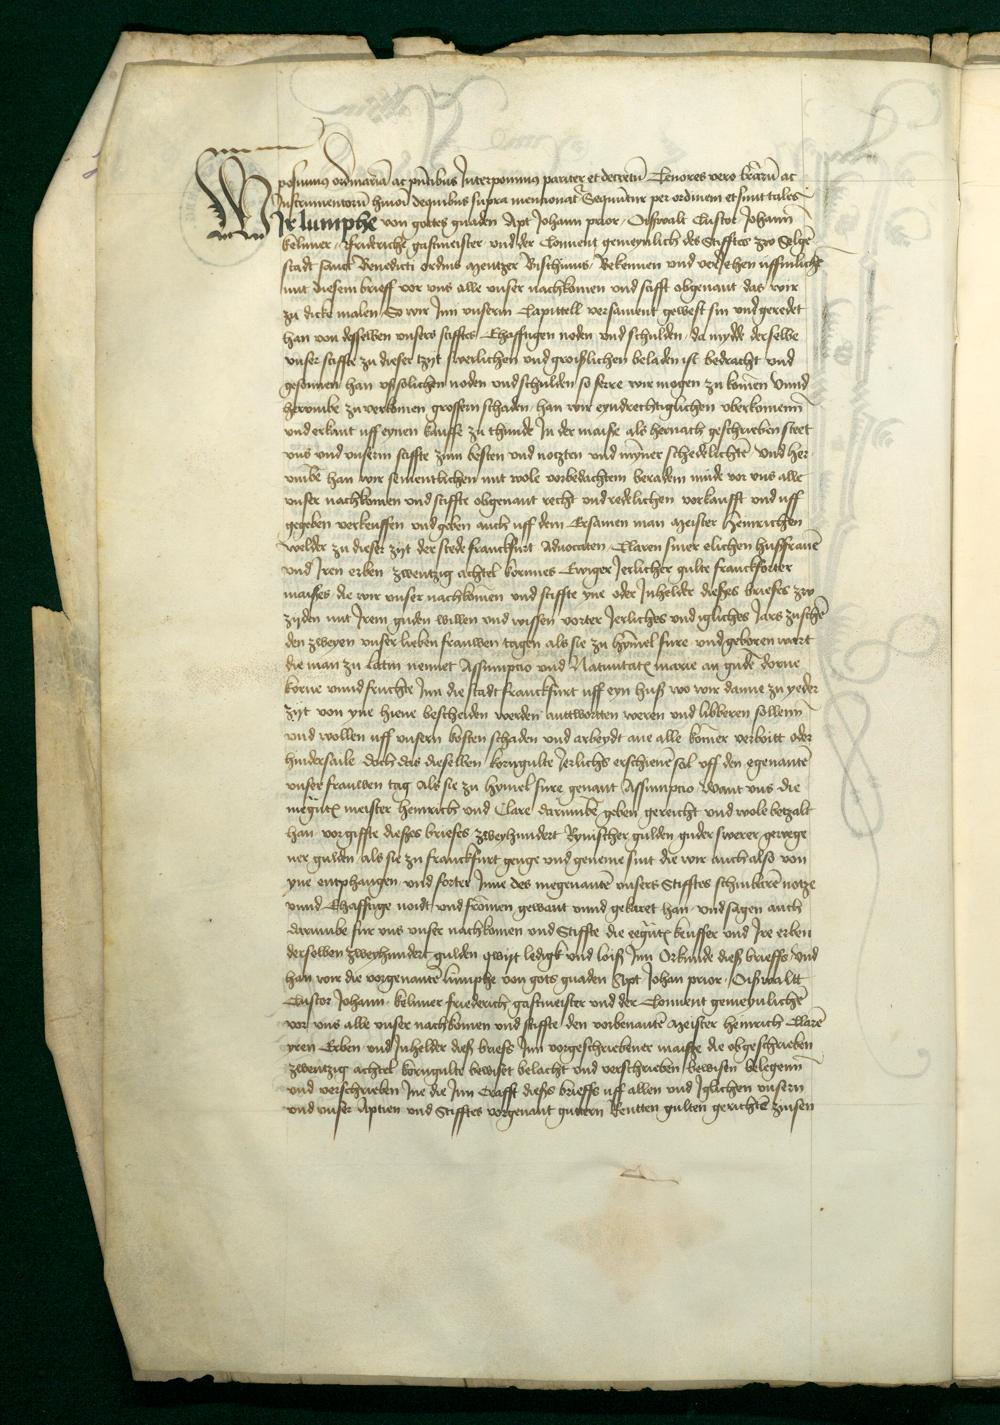 posuimus ordinariā ac pñtibus Interponimus pariter et decretū Tenores vero lr̄arū ac
Instrumentorū hmōi dequibus supra mentionat̄ Sequūntr per ordinem et sunt tales
Wir lumphe von gottes gnaden Apt Johann prior Oißwalt Custor Johañ
kelnner Friderich gastmeister und der Convent gemeynlich des Stifftes zw Selgē
stadt sanct Benedicti ordins Mentzer Bischtums Bekennen und versehen uffinlich
mit diesem brieff vor uns alle unser nachkomen und stifft obgenant das wir
zu dicke malen So wir Inn unserm Capittell versament gewest sin und geredet
han von desselben unsers stifftes Ehafftigen noden und schulden da mydde derselbe
unser stiffte zu dieser tzyt swerlichen und großlichen beladen ist bedracht und
gesonnen han uß solichen noden und schulden so ferre wir mogen zu komen Unnd
herumbe zu verkomen grossern schaden han wir eyndrechtiglichen uberkomenn
und erkant uff eynen kauffe zu thunde In der maisse als hernach geschrieben steet
uns und unserm stiffte zum besten und notzten und mynner schedelichte Und her
umbe han wir sementlichen mit wole vorbedachtem beradem mude vor uns alle
unser nachkomen und stiffte obgenant recht und redelichen vorkaufft und uff
gegeben verkeuffen und geben auch uff dem Ersamen man Meister Heinrichen
Welder zu dieser zyt der stede franckfurt Advocaten Claren siner elichen hußfrauē
und Iren erben zwentzig achtel kornnes Ewiger Jerlicher gulte franckforter
maisses die wir unser nachkomen und stiffte yne oder Inhelder dießes brieffes zw
zijden mit Irem guden willen und wissen vorter Jerliches und igliches Jars zuschē
den zweyen unser lieben frauwen tagen als sie zu hymel fure und geboren wart
die man zu latin nennet Assumptio und Natiuitatz marie an gudē dorne
korne unnd fruchte Inn die stadt franckfurt uff eyn huß wo wir danne zu yeder
zijt von yne hiene bescheiden werden anttwortten weren und libberen sollenn
und wollen uff unsern kosten schaden und arbeydt ane alle kom̄er verboitt oder
hindersaile doch das dieselben korngulte Jerlichs erschienē sol uff den egenantē
unser frauwen tag als sie zu hymel fure genant Assumptio Want uns die
megutz meister Heinrich und Clare darumbe geben gereicht und wole betzalt
han vorgiffte dießes brieffes zweyhundert Rynischer gulden guder swerer gewege
ner gulden als sie zu franckfurt genge und geneme sint die wir auch also von
yne entphangen und forter Inne des megenantē unsers Stifftes schinbarē notze
unnd Ehafftige noidt und fromen gewant unnd gekaret han und sagen auch
darumbe fur uns unser nachkomen und Stiffte die egutz keuffer und Ire erben
derselben zweyhundert gulden quijt ledigk und loiß Inn Orkunde dieß brieffs Und
han wir die vorgenantē lumphe von gots gnaden Apt Johan prior Oißwaltt
Custor Johann kelnner friederich gastmeister und der Convent gemeynlichē
vor uns alle unser nachkomen und stiffte den vorbenantē Meister Heinrich Clarē
yren Erben und Inhelder dieß brieffs Inn vorgeschriebener maisße die obgeschrieben
zwentzig achtel korngulte bewiset belacht und verschrieben bewisen belegenn
und verschrieben Ine die Inn Crafft dießs brieffs uff allen und Iglichen unsern
und unser Aptien und Stifftes vorgenant guttern Rentten gulten gerichtē zinsen